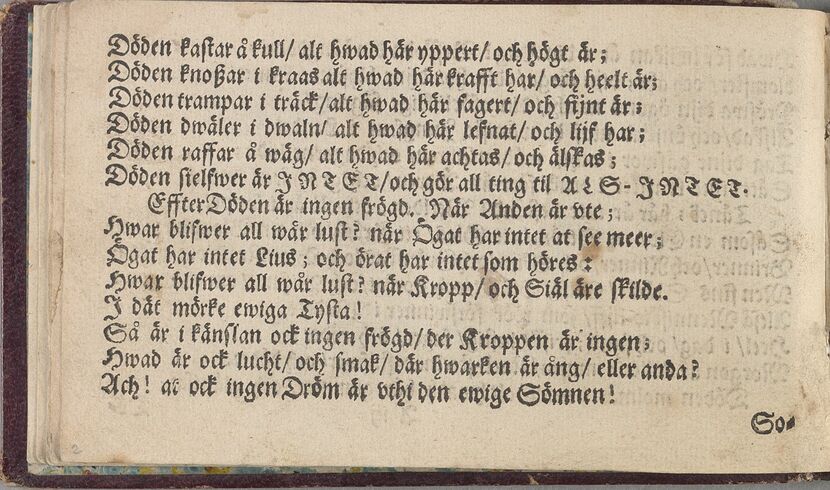 Döden kastar å kull/ alt hwad här yppert/ och högt är;
Döden knoßar i kraas alt hwad här krafft har/ och heelt är;
Döden trampar i träck/ alt hwad här fagert/ och fijnt är;
Döden dwäler i dwaln/ alt hwad här lefnat/ och lijf har;
Döden raffar å wäg/ alt hwad här achtas/ och älskas;
Döden sielfwer är INTET/ och gör all ting til ALS-INTET.
Effter Döden är ingen frögd. När Anden är vte;
Hwar blifwer all wår lust? när Ögat har intet at see meer;
Ögat har intet Lius; och örat har intet som höres:
Hwar blifwer all wår lust? när Kropp/ och Siäl äre skilde.
I dät mörke ewiga Tysta!
Så är i känslan ock ingen frögd/ der Kroppen är ingen;
Hwad är ock lucht/ och smak/ där hwarken är ång/ eller anda?
Ach! at ock ingen Dröm är vthi den ewige Sömnen!
So-
2